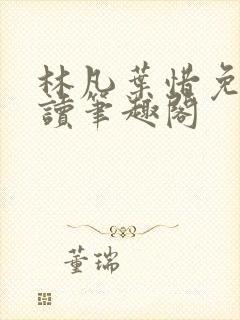 林凡葉惜免
讀筆趣閣
董瑞